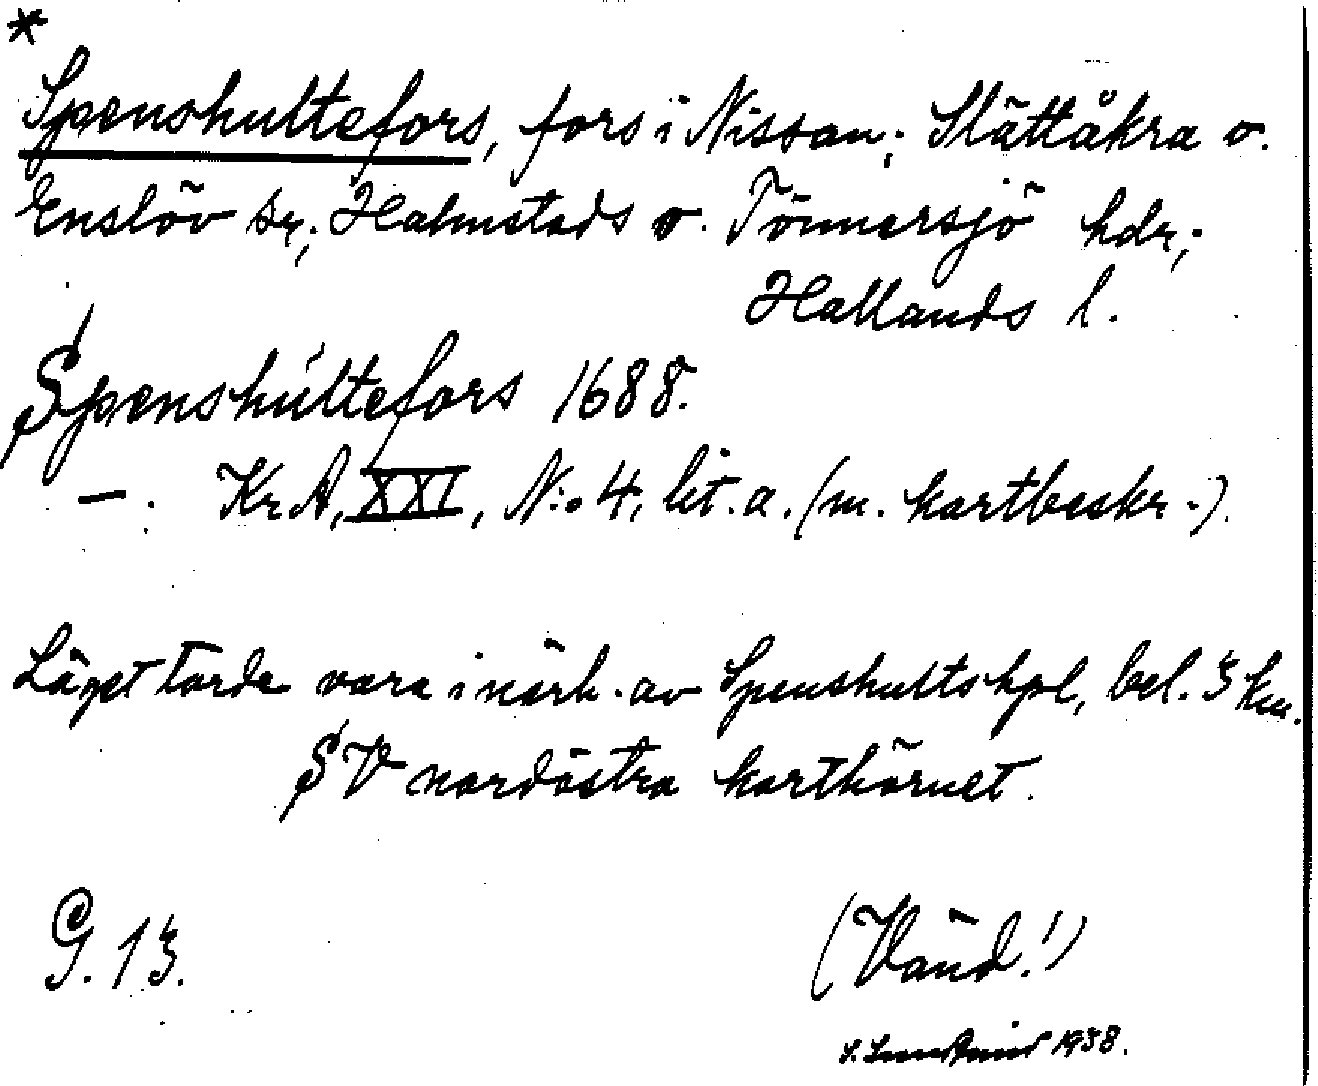 *
Spenshultefors, fors i Nissan; Slättåkra o.
Enslöv sr; Halmstads o. Tönnersjö hdr;
Hallands l.
Spenshultefors 1688.
—. Kr.A, XXI, N:o 4, lit. a. (m. kartbeskr.).
Läget torde vara i närh. av Spenshults hpl, bel. 3 km.
SV nordöstra karthörnet.
G. 13.
(Vänd!)
1938.